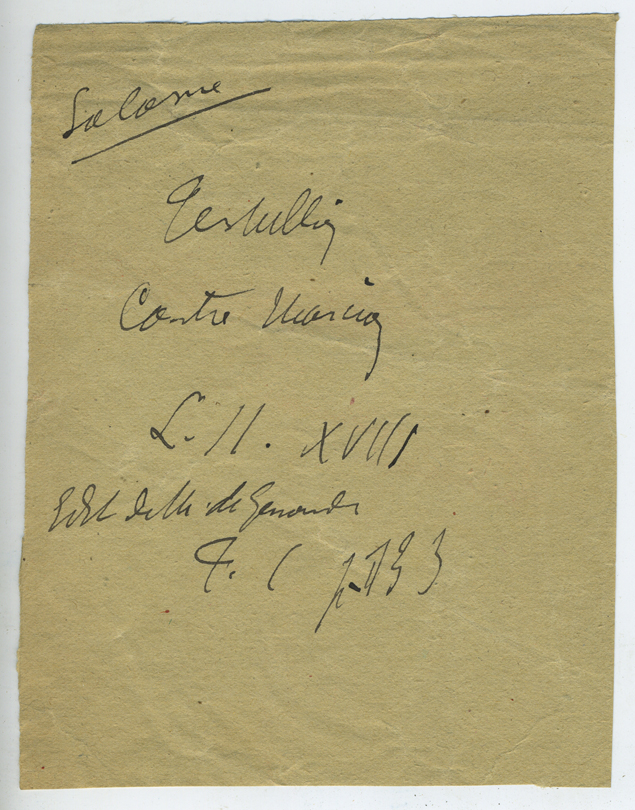 Salomé
Tertullien
Contre Marcion
L. II. XVIII
Edit de M. de Genoude
T. I p. 133